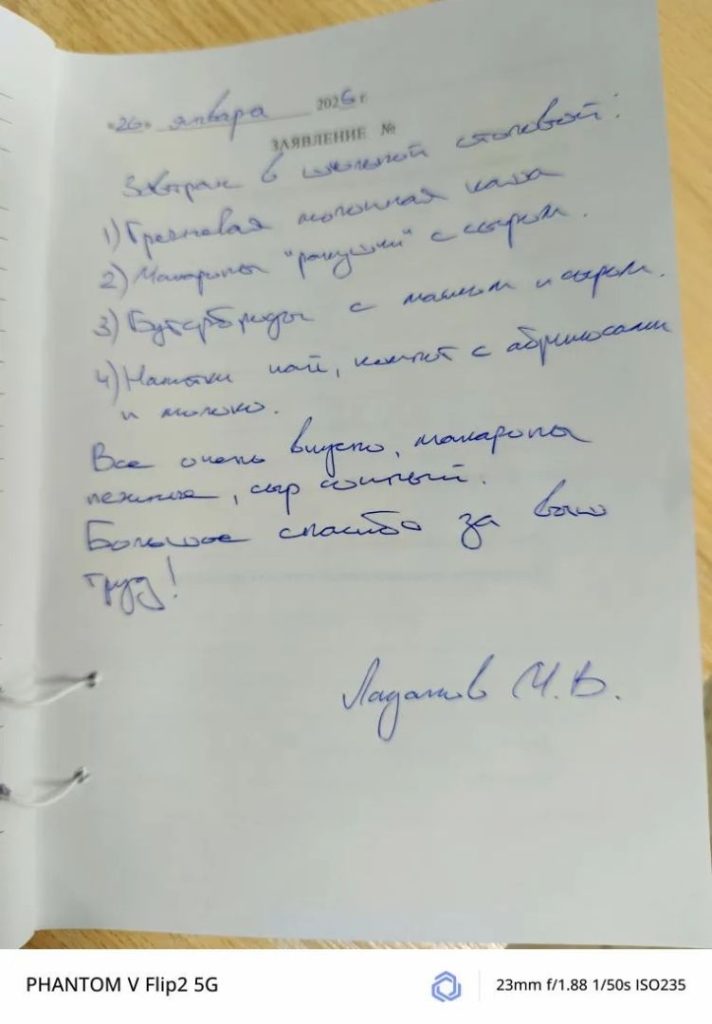 «26» января 2026 г.
ЗАЯВЛЕНИЕ №
Завтрак в школьной столовой:
1) Гречневая молочная каша
2) Макароны "ракушки" с сыром.
3) Бутерброды с маслом и сыром.
4) Напитки чай, компот с абрикосами
и молоко.
Все очень вкусно, макароны
нежные, сыр сочный.
Большое спасибо за ваш
труд!
М.В.
PHANTOM V Flip2 5G
23mm f/1.88 1/50s ISO235